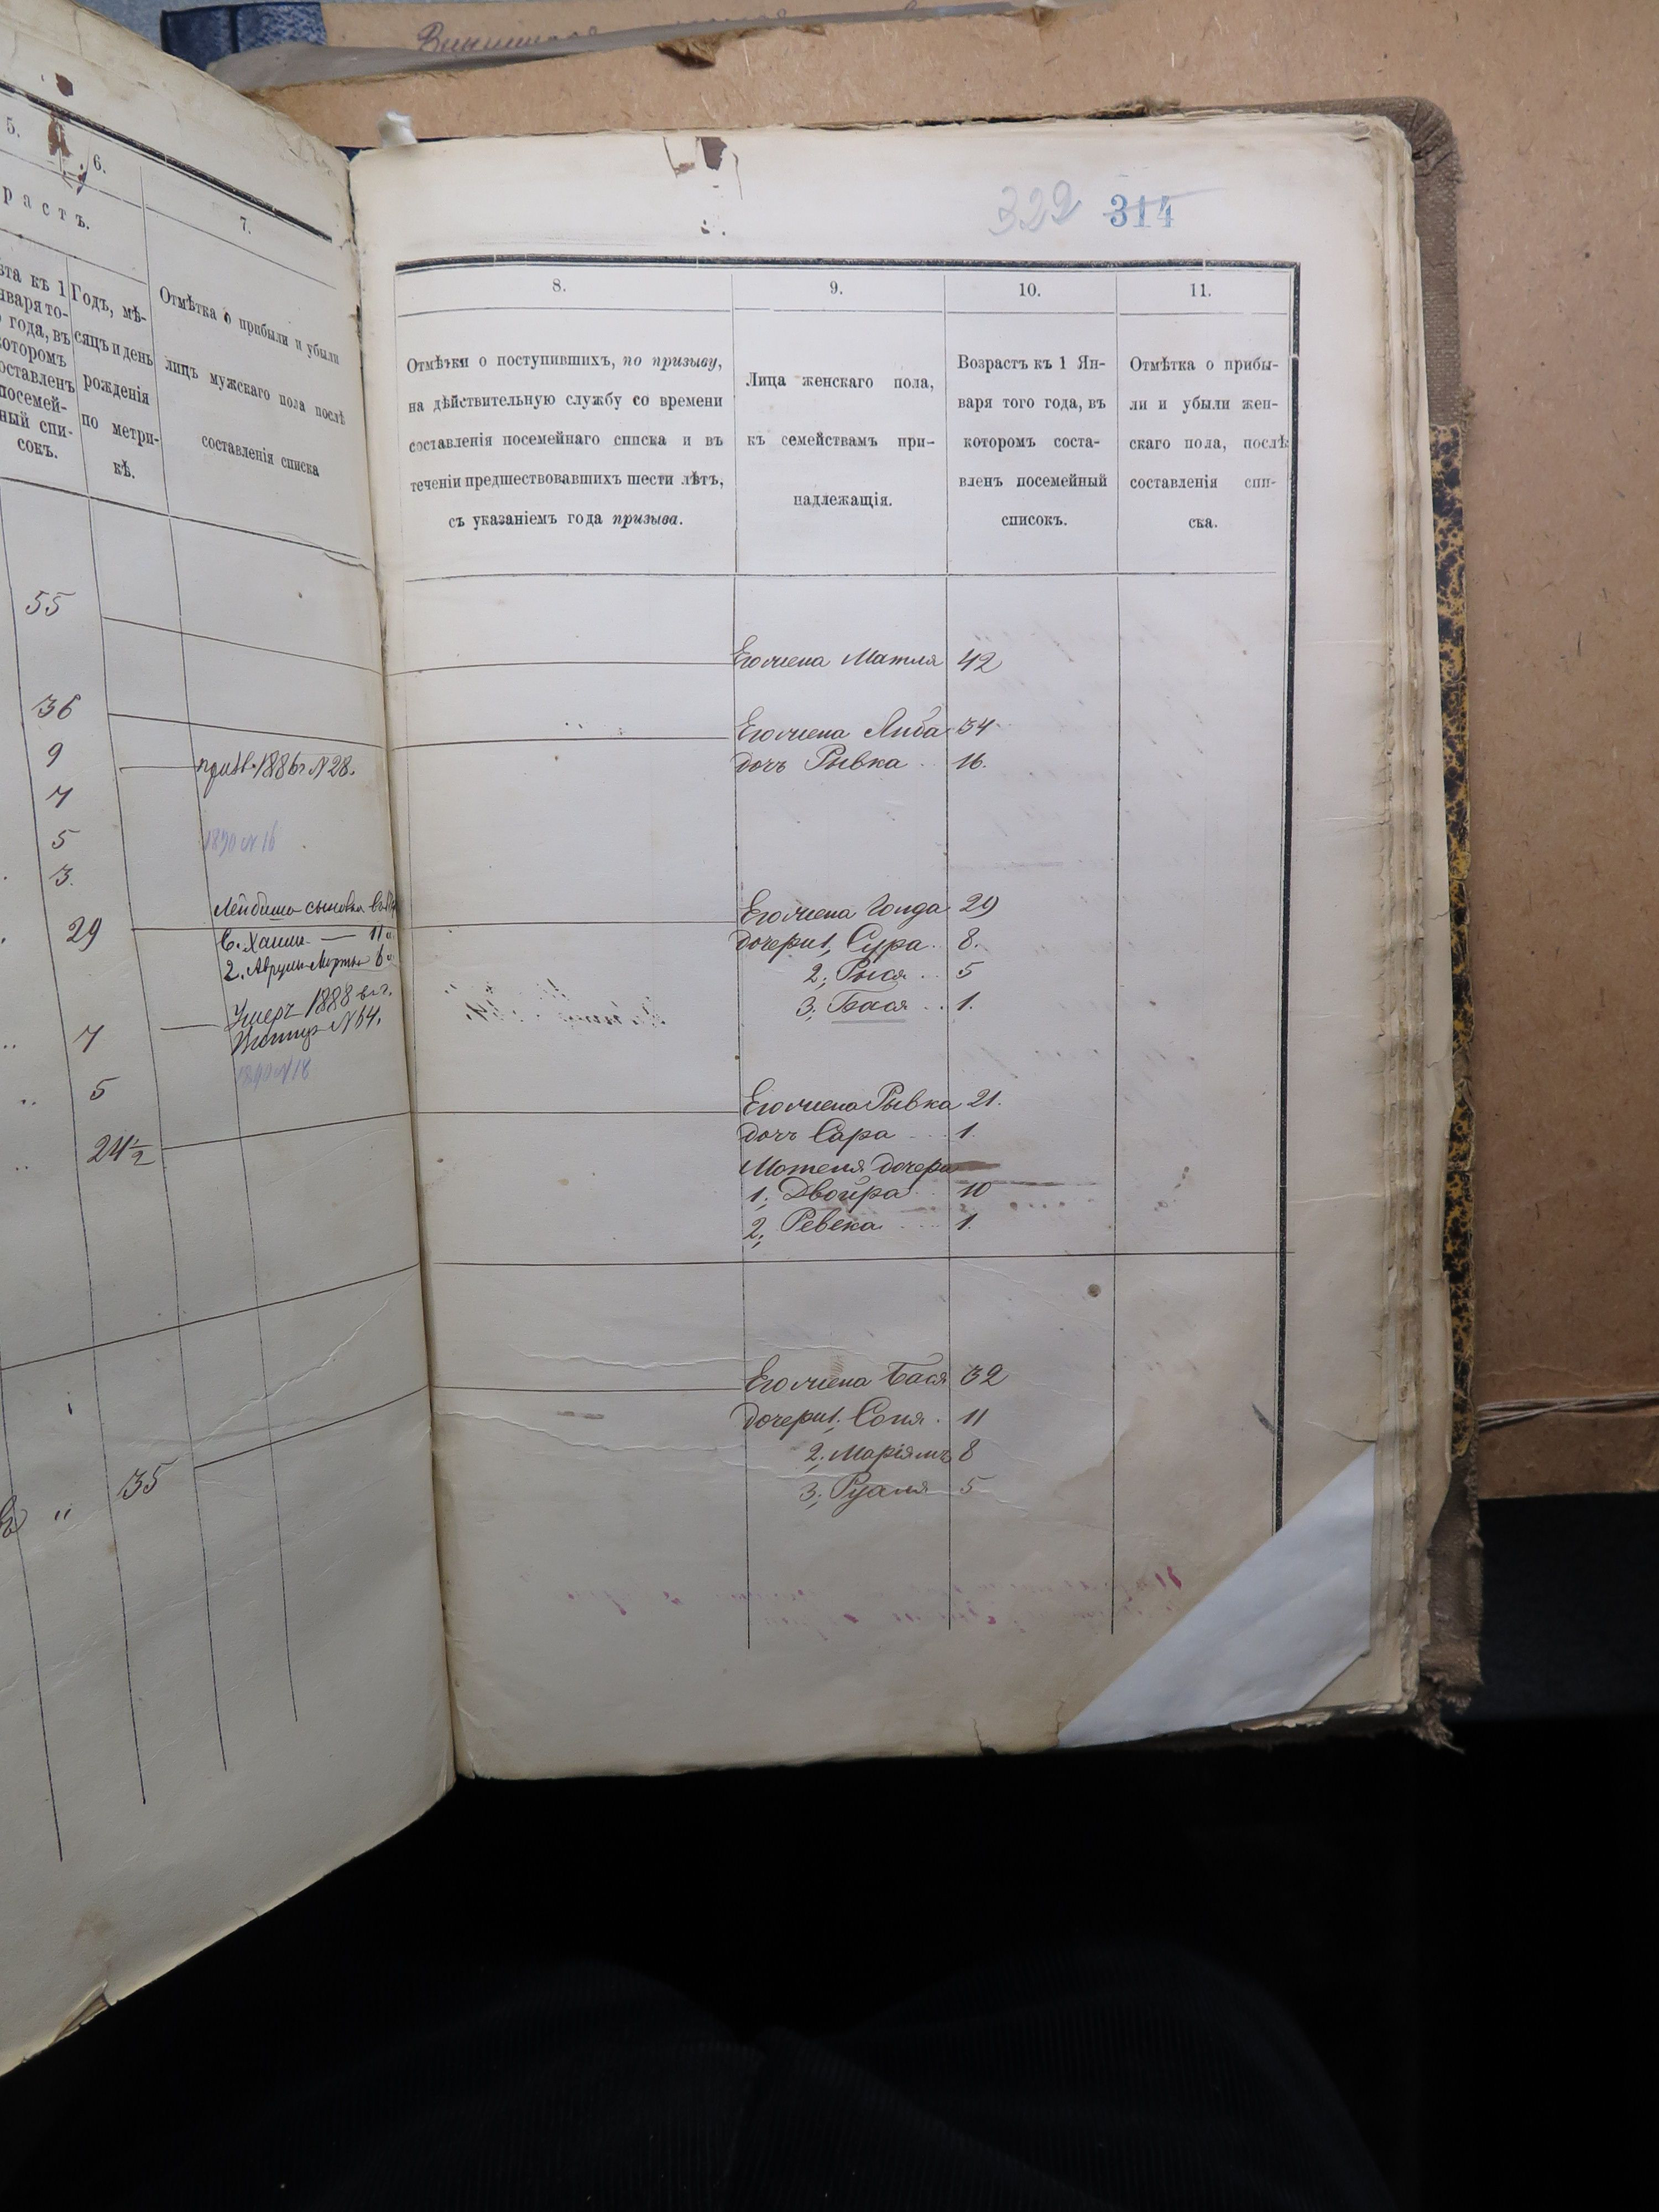 5.
6.
7.
растъ.
ѣта къ 1
нваря то-
года, въ
которомъ
составленъ
посемей-
ный спи-
сокъ.
Годъ, мѣ-
сяцъ и день
рожденія
по метри-
кѣ.
Отмѣтка о прибыли и убыли
лицъ мужскаго пола послѣ
составленія списка
55
36
9
призв. 1886 г N 28.
7
5
1890 N 16
3.
29
Лейбиша сыновья
1. Хаимъ — 11
2. Аврумъ 6
Умеръ 1888 в г.
N 64.
7
1890 N 18
5
24 1/2
35
322 314
8.
9.
10.
11.
Отмѣтки о поступившихъ, по призыву,
на дѣйствительную службу со времени
составленія посемейнаго списка и въ
теченіи предшествовавшихъ шести лѣтъ,
съ указаніемъ года призыва.
Лица женскаго пола,
къ семействамъ при-
надлежащія.
Возрастъ къ 1 Ян-
варя того года, въ
которомъ соста-
вленъ посемейный
списокъ.
Отмѣтка о прибы-
ли и убыли жен-
скаго пола, послѣ
составленія спи-
ска.
Его жена Матля 42
Его жена Либа 34
дочь Рывка 16.
Его жена Голда 29
дочери 1, Сура 8.
2, Рыся 5
3, Бася 1.
Его жена Рывка 21.
дочь Сара 1.
Мотеля дочери
1, Двойра 10
2, Ревека 1.
Его жена Бася 32
дочери 1, Соня 11
2, Маріямъ 8
3, Рухля 5